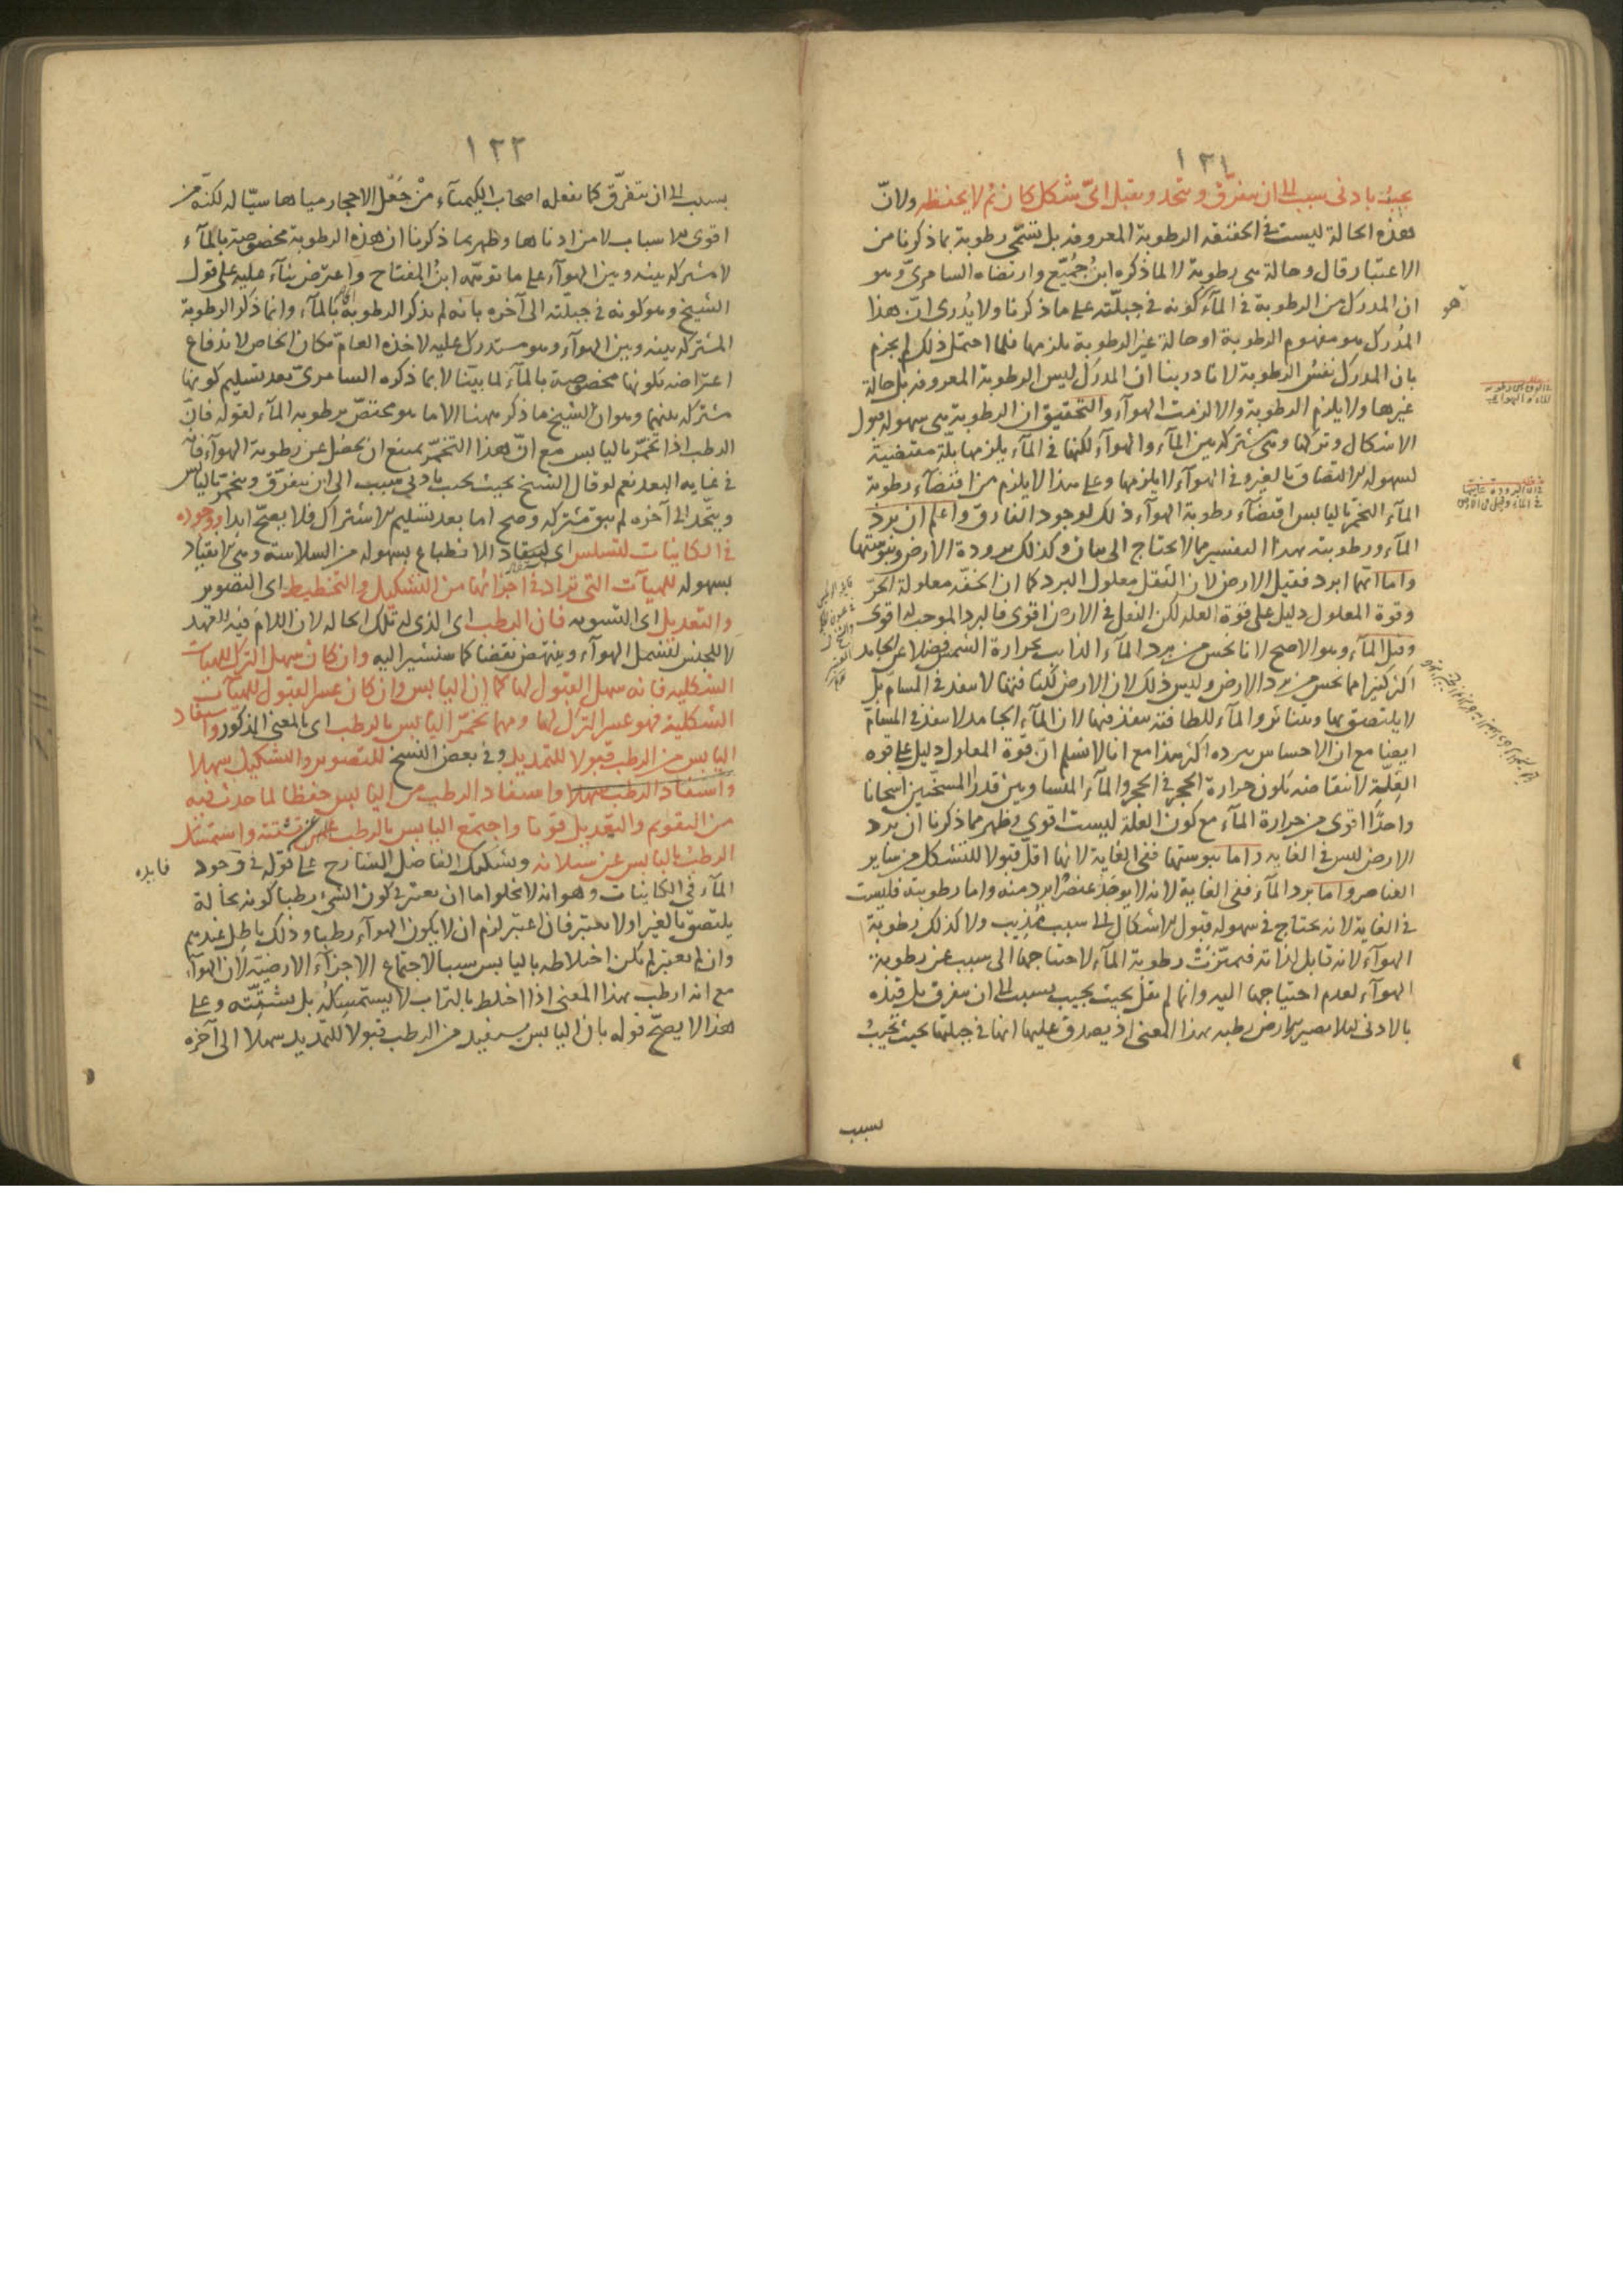 ١٢١
يجيب بادنى سبب الى ان يتفرق و يتحد و يقبل اىّ شكل كان ثم لا يحفظه ولانّ
هذه الحالة ليست فى الحقيقه الرطوبة المعروفه بل تسمّى رطوبة بما ذكرنا من
الاعتبار قال و حالة هى رطوبة لا لما ذكره ابن جُمَيّع وارتضاه السامرىّ وهو
ان المدرك من الرطوبة فى المآء كونه فى جبلّته على ما ذكرنا ولا يُدرى انّ هذا
المُدرك هو مفهوم الرطوبة او حالة غير الرطوبة يلزمها فلما احتمل ذلك لم يجزم
بان المدرك نفسُ الرطوبة لانا درينا ان المدرَك ليس الرطوبة المعروفه بل حالة
غيرها ولا يلزم الرطوبة والا لزمت الهوآء والتحقيق ان الرطوبة هى سهولة قبول
الاشكال وتركها وهى مشتركه بين المآء والهوآء لكنها فى المآء يلزمها بلّة مقتضية
لسهولة الالتصاق بالغير وفى الهوآء لا يلزمها وعلى هذا لا يلزم من اقتضآء رطوبة
المآء التخمر باليابس اقتضآء رطوبة الهوآء ذلك لوجود الفارق واعلم ان برد
المآء ورطوبته بهذا التفسير مما لا يحتاج الى بيان وكذلك برودة الارض ويبوستها
واما ايّهما ابرد فقيل الارض لان الثقل معلول البرد كما ان الخفّه معلولة الحرّ
وقوة المعلول دليل على قوّة العله لكن الثقل فى الارض اقوى فالبرد الموجب له اقوى
وقيل المآء وهو الاصح لانا نحس من برد المآء الذايب بحرارة الشمس فضلا عن الجامد
اكثر كثيرا مما نحس من برد الارض وليس ذلك لان الارض لكثافتها لا تنفذ فى المسامّ بل
لا يلتصق بها ويتناثر والمآء للطافته ينفذ فيها لان المآء الجامد لا ينفذ فى المسامّ
ايضا مع ان الاحساس ببرده اكثر هذا مع انا لا نسلم انّ قوّة المعلول دليل على قوه
العِلّة لانتقاضه بكون حرارة الحجر فى الحجر والمآء المتساويين قدرا المسخّنين اسخانا
واحدًا اقوى من حرارة المآء مع كون العلة ليست اقوى وظهر مما ذكرنا ان برد
الارض ليس فى الغايه واما يبوستها ففى الغاية لانها اقلّ قبولا للتشكل من ساير
العناصر واما برد المآء ففى الغاية لانه لا يوجَد عنصرٌ ابرد منه واما رطوبته فليست
فى الغاية لانه يحتاج فى سهوله قبول الاشكال الى سبب مُذيب ولا كذلك رطوبة
الهوآء لانه قابل لذاته فيميّزت رطوبة المآء لاحتياجها الى سبب عن رطوبة
الهوآء لعدم احتياجها اليه وانما لم يقل بحيث يجيب بسبب الى ان يتفرق بل قيّده
بالادنى ليلا يصير الارض رطبه بهذا المعنى اذ يصدق عليها انها فى جبلتها بحيث تجيبُ
بسبب
١٢٢
بسبب الى ان يتفرّق كما يفعله اصحاب الكيميآء مِنْ جَعْل الاحجار مياها سيّاله لكنّه من
اقوى الاسباب لا من ادناها وظهر بما ذكرنا ان هذه الرطوبة مخصوصية بالمآء
لا مشتركه بينه وبين الهوآء على ما توهّمه ابنُ المفتاح واعترض بنآء عليه على قول
الشيخ وهو كونه فى جبلّته الى آخره بانه لم يذكر الرطوبة بالمآء وانما ذكر الرطوبة
المشتركه بينه وبين الهوآء وهو مستدرك عليه لاخذه العامّ مكان الخاص لاندفاع
اعتراضه بكونها مخصوصية بالمآء لما بيّنا لا بما ذكره السامرىّ بعد تسليم كونها
مشتركه بينهما وهو ان الشيخ ما ذكر ههنا الا ما هو مختصّ برطوبه المآء لقوله فانّ
الرطب اذا تخمّر باليابس مع انّ هذا التخمّر يمتنع ان يحصل عن رطوبة الهوآء فانه
فى غايه البعد نعم لو قال الشيخ بحيث يجيب بادنى سبب الى ان يتفرّق ويتخمر باليابس
ويتّحد الى آخره لم يبق مشتركه وصح اما بعد تسليم الاشتراك فلا يصحّ ابدا ووجوده
فى الكاينات لتسلس اى لينقاد الانطباع بسهوله من السلاسة وهى الانقياد
بسهوله للهيآت التى تراد فى اجزائها من التشكيل والتخطيط اى التصوير
والتعديل اى التسويه فان الرطب اى الذى له تلك الحاله لان اللامَ فيه للعهد
لا للجنس لتشمل الهوآء وينتهض نقضا كما سنشير اليه وان كان سهل الترك للهيآت
الشكليه فانه سهل القبول لها كما ان اليابس وان كان عسر القبول للهيآت
الشكلية فهو عسر الترك لها ومهما تخمّر اليابس بالرطب اى بالمعنى المذكور استفاد
اليابس من الرطب قبولا للتمديد وفى بعض النسخ للتصوير والتشكيل سهلا
واستفاد الرطب سهلا واستفاد الرطب من اليابس حفظا لما حدث فيه
من التقويم والتعديل قويا واجتمع اليابس بالرطب عن تشتته واستمسك
الرطب باليابس عن سيلانه ويشكك الفاضل الشارح على قوله فى وجود
فايده
المآء فى الكاينات وهو انه لا يخلوا ما ان يعتبر فى كون الشىء رطبا كونه بحالة
يلتصق بالغير اولا يعتبر فان اعتبر لزم ان لا يكون الهوآء رطبا وذلك باطل عندهم
وان لم يعتبر لم يكن اختلاطه باليابس سببا لاجتماع الاجزآء الارضيّة لان الهوآء
مع انه ارطب بهذا المعنى اذا اخلط بالتراب لا يستمسِكُه بل يشتّته وعلى
هذا لا يصحّ قوله بان اليابس يستفيد من الرطب قبولا للتمديد سهلا الى آخره